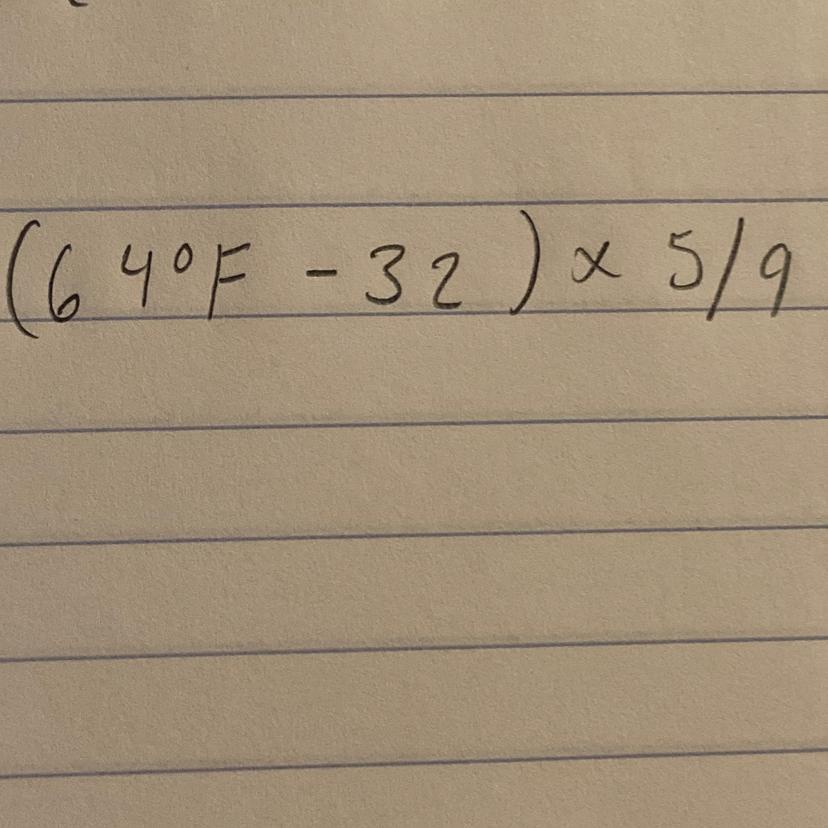 (64°F - 32) x 5/9